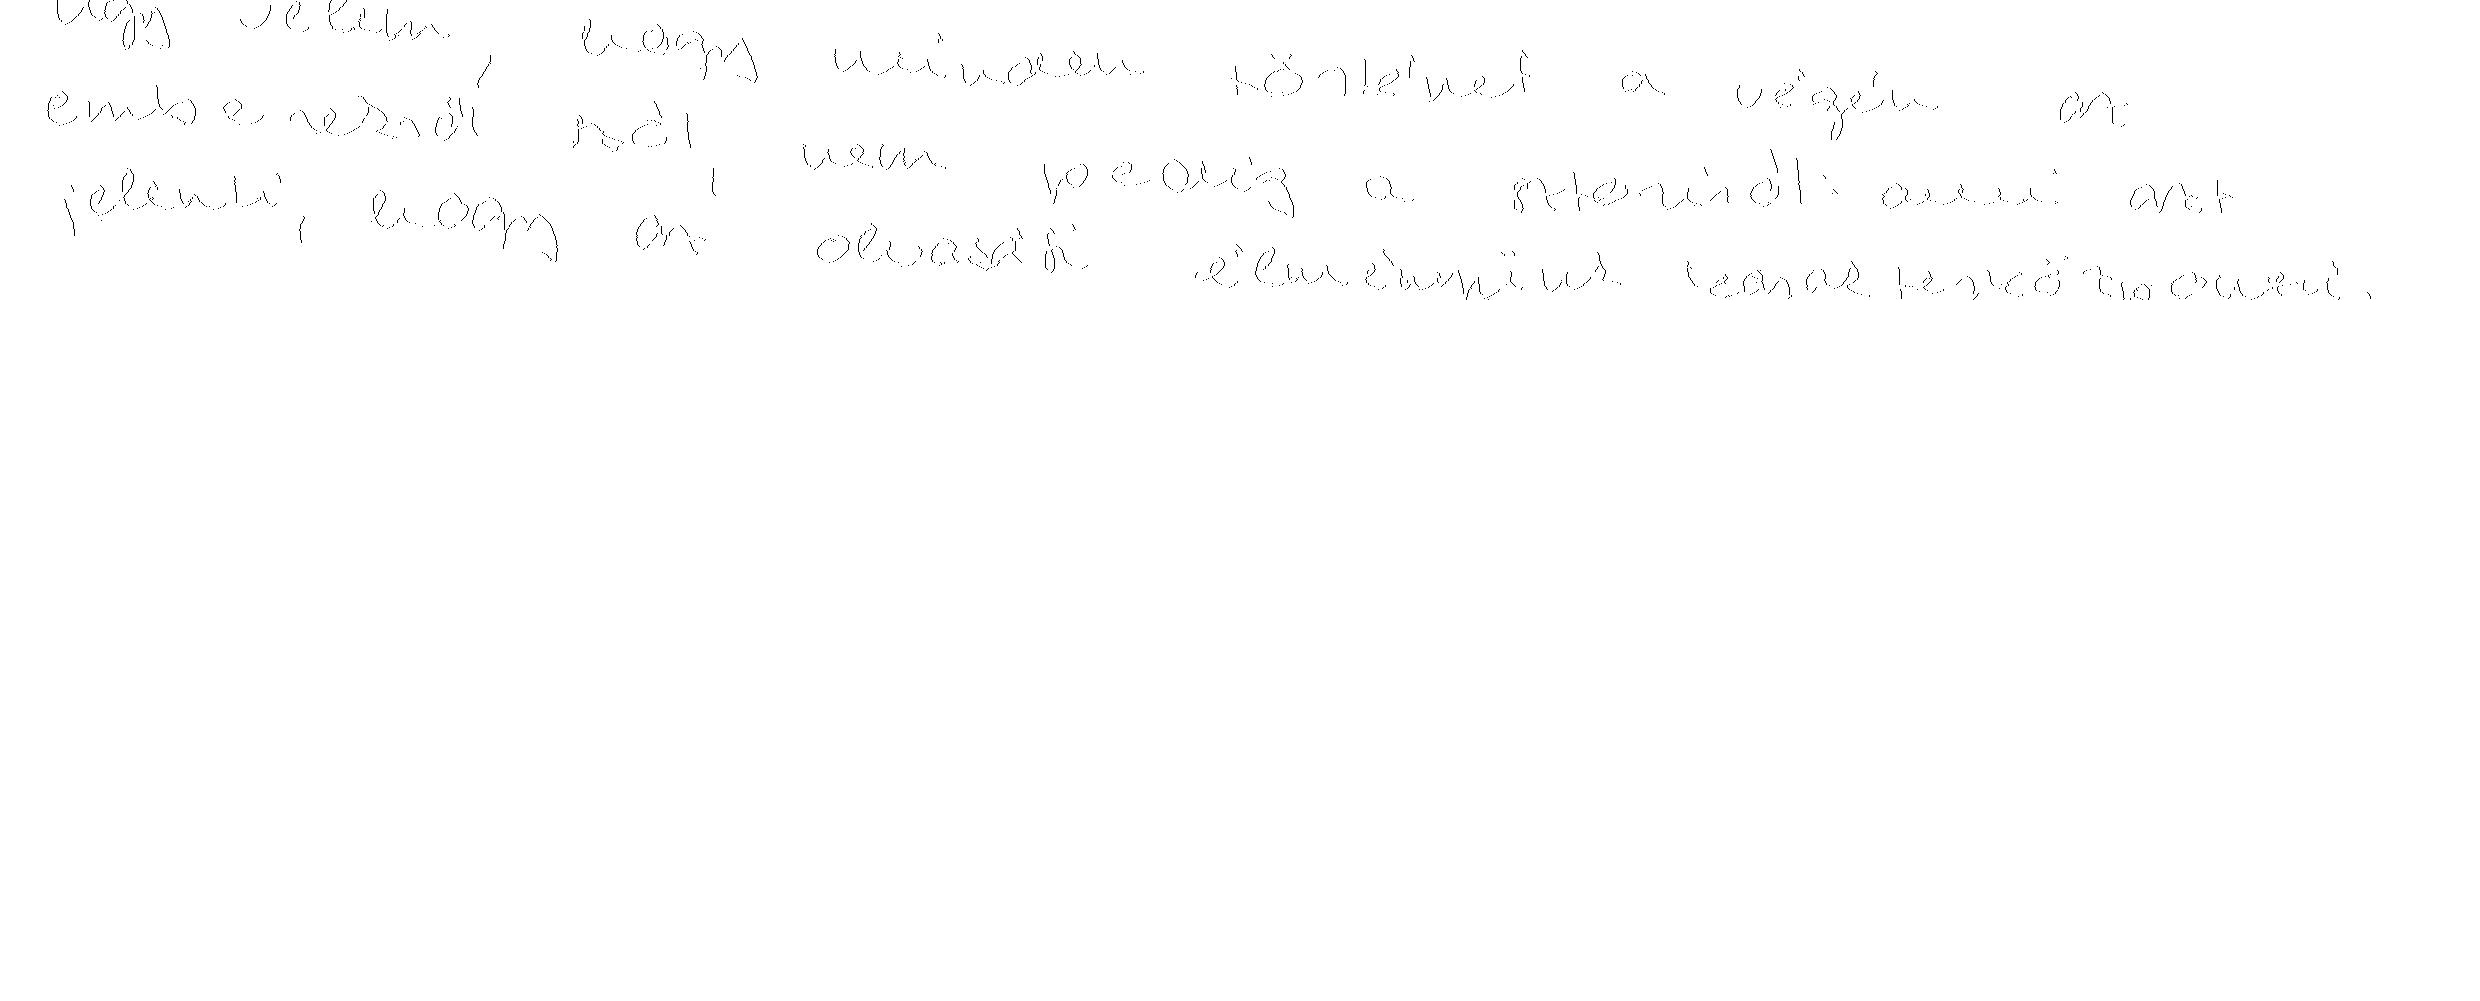 úgy vélem, hogy minden történet a végén az
emberekről szól, nem pedig a sztoriról: ami azt
jelenti, hogy az olvasói élményünk karakterközpontú.